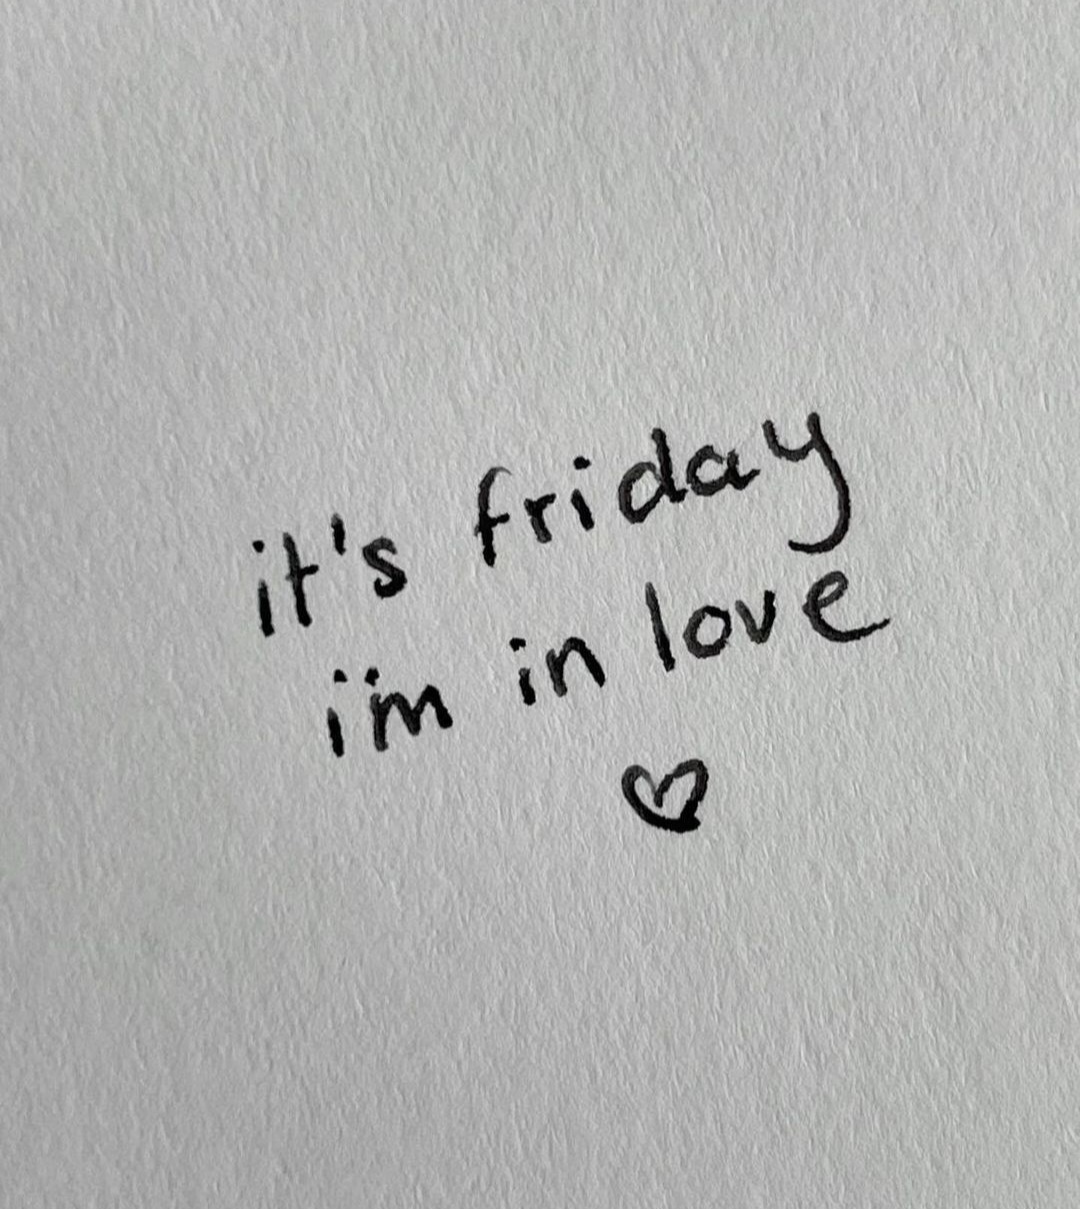 it's friday
i'm in love
♡